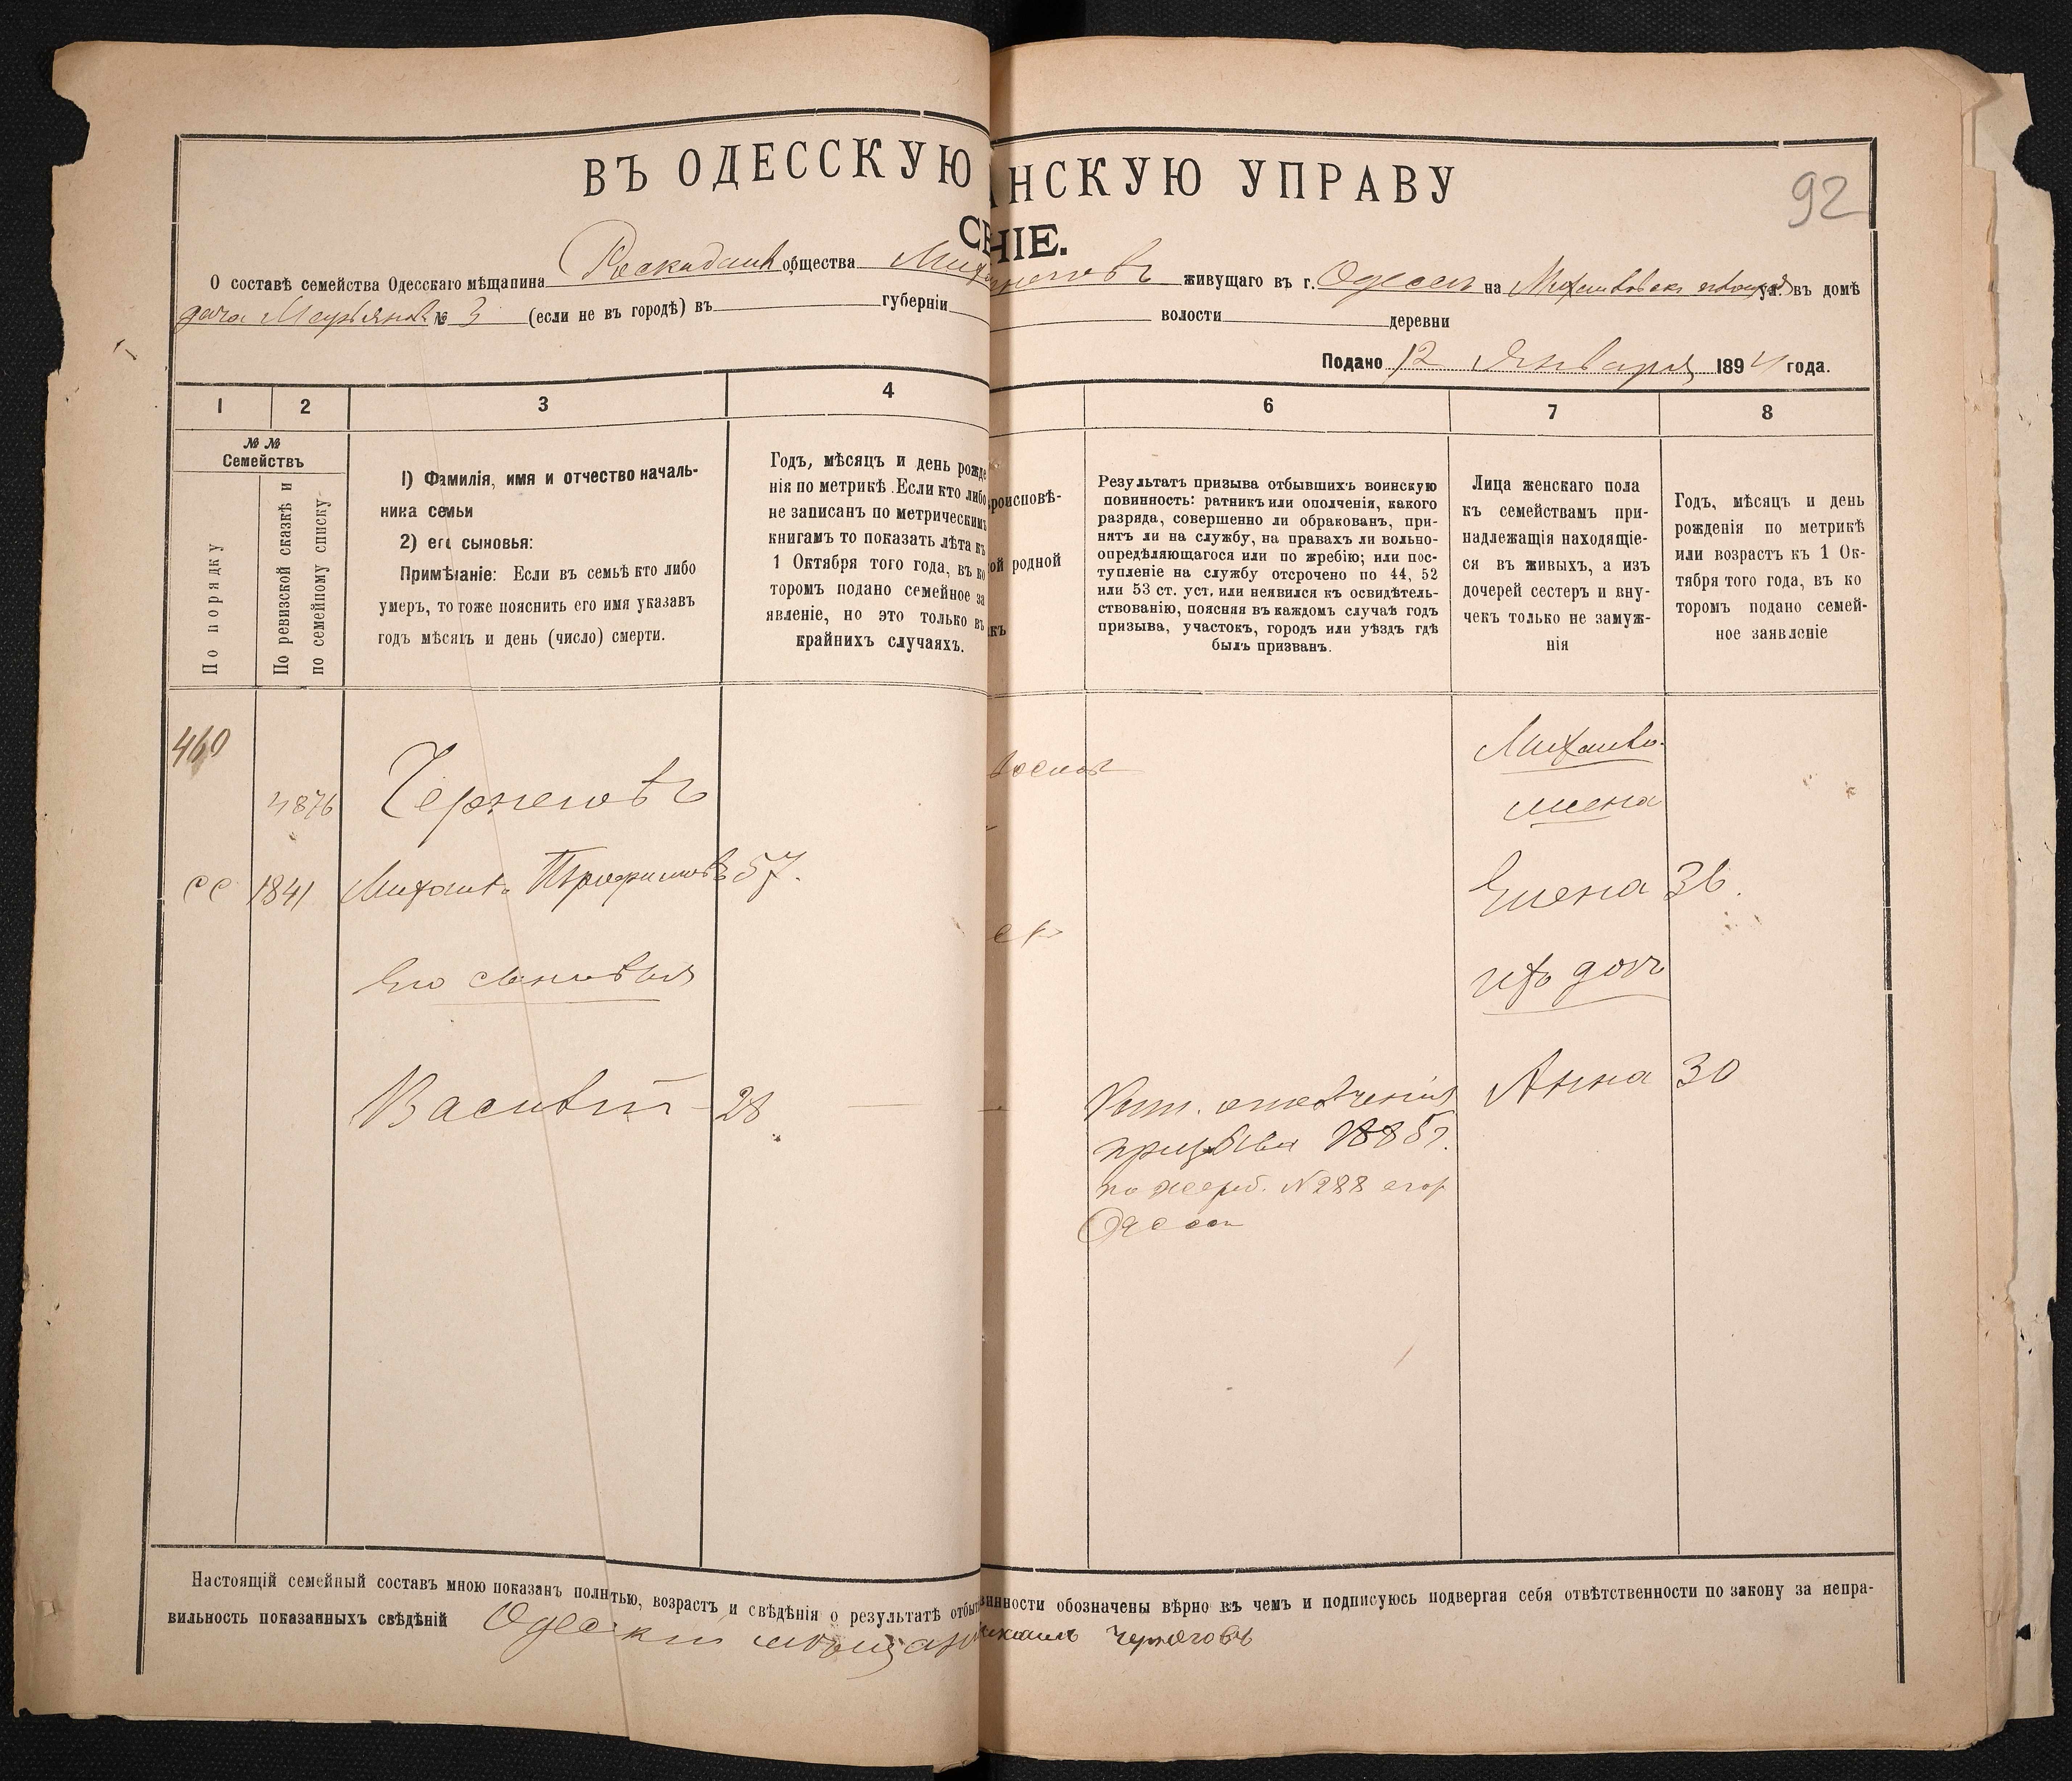 ВЪ ОДЕССКУЮ НСКУЮ УПРАВУ
92
СЕ НІЕ.
О составѣ семейства Одесскаго мѣщанина общества живущаго въ г. Одессѣ на ул. въ домѣ
дача № 3 (если не въ городѣ) въ губерніи волости деревни
Подано 12 Января 1894 года.
1 2 3 4 6 7 8
№ №
Семействъ
По порядку
По ревизской сказкѣ и
по семейному списку
1) Фамилія, имя и отчество началь-
ника семьи
2) его сыновья:
Примѣчаніе: Если въ семьѣ кто либо
умеръ, то тоже пояснить его имя указавъ
годъ мѣсяцъ и день (число) смерти.
Годъ, мѣсяцъ и день рожде
нія по метрикѣ. Если кто либо
не записанъ по метрическимъ
книгамъ то показать лѣта къ
1 Октября того года, въ ко
торомъ подано семейное за
явленіе, но это только въ
крайнихъ случаяхъ.
роисповѣ-
ой родной
къ
Результатъ призыва отбывшихъ воинскую
повинность: ратникъ или ополченія, какого
разряда, совершенно ли обракованъ, при-
нятъ ли на службу, на правахъ ли вольно-
опредѣляющагося или по жребію; или пос-
тупленіе на службу отсрочено по 44, 52
или 53 ст. уст. или неявился къ освидѣтель-
ствованію, поясняя въ каждомъ случаѣ годъ
призыва, участокъ, городъ или уѣздъ гдѣ
былъ призванъ.
Лица женскаго пола
къ семействамъ при-
надлежащія находящіе-
ся въ живыхъ, а изъ
дочерей сестеръ и вну-
чекъ только не замуж-
нія
Годъ, мѣсяцъ и день
рожденія по метрикѣ
или возрастъ къ 1 Ок-
тября того года, въ ко
торомъ подано семей-
ное заявленіе
460
4876 Черноговъ
Михаила
жена
1841 Михаилъ Трофимовъ 57. Елена 36.
Его сыновья ихъ дочь
Василій 28 Рат. ополченія Анна 30
призыва 1885г.
по жереб. № 288 
Одесса
Настоящій семейный составъ мною показанъ полнтью, возрастъ и свѣдѣнія о результатѣ отбыт винности обозначены вѣрно въ чемъ и подписуюсь подвергая себя отвѣтственности по закону за непра-
вильность показанныхъ свѣдѣній Одескій мѣщанин Михаилъ Черноговъ